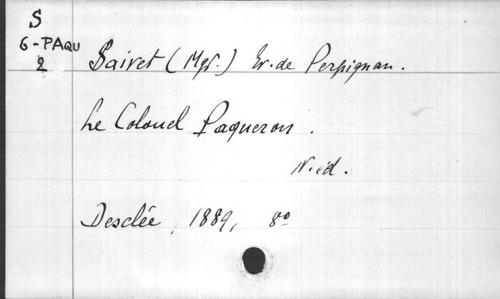 S
6-PAQU
2
Sairet (Mgr.) Ev. de Perpignan.
Le Colonel Paqueron.
N. éd.
Desclée, 1889, 8º